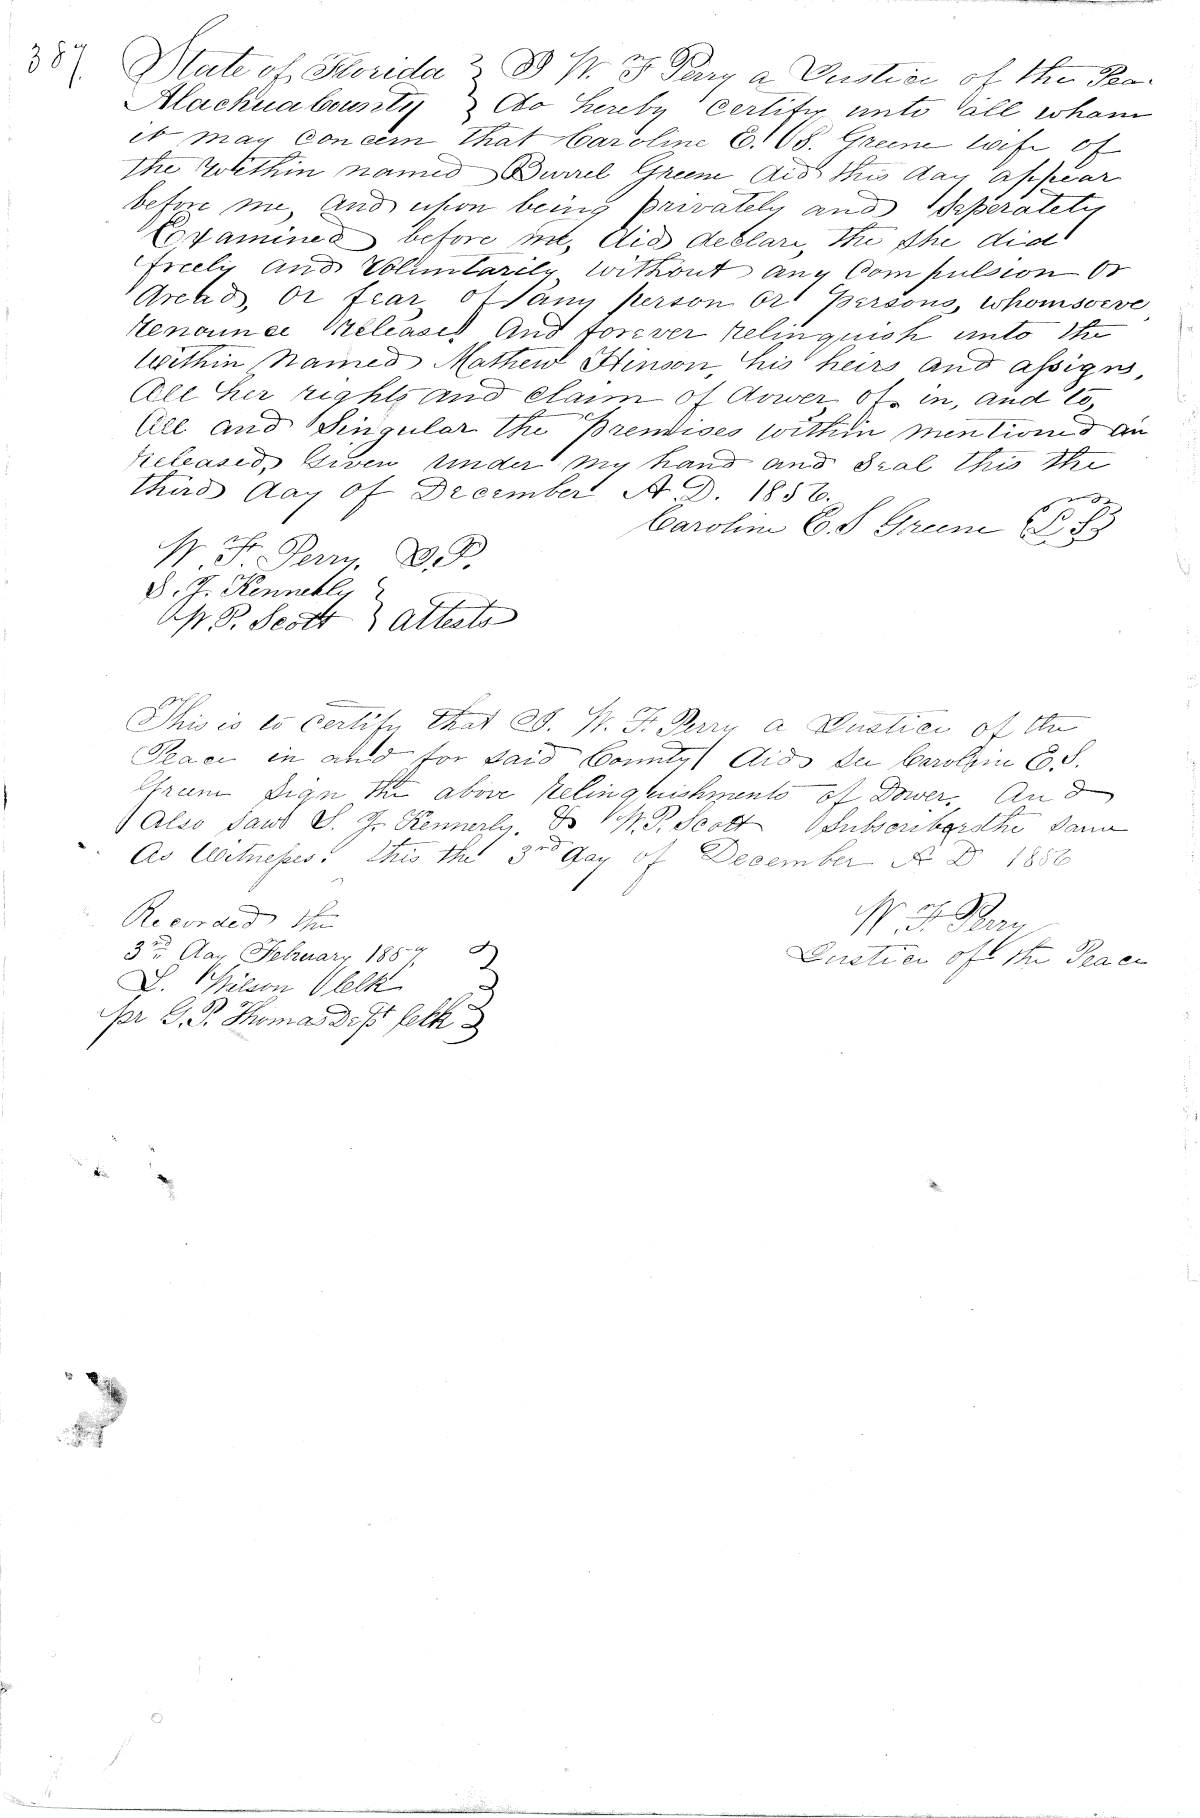 387.
State of Florida } I W. F Perry a Justice of the Pea
Alachua County } do hereby certify unto all whom
it may concern that Caroline E. S. Greene wife of
the within named Burrel Greene did this day appear
before me, and upon being privately and seperately
Examined before me, did declare, the she did
freely and Voluntarily without any Compulsion or
dread, or fear, of any person or persons, whomsoeve
renounce release, And forever relinquish unto the
within Named Mathew Hinson, his heirs and assigns,
All her rights and claim of dower, of, in, and to,
All and Singular the Premises within mentioned an
released, Given under my hand and Seal this the
third day of December A. D. 1856.
Caroline E. S Greene (L. S)
W. F. Perry. J.P.
S. J. Kennerly }
W P. Scott } attests
This is to certify that I. W. F. Perry a Justice of the
Peace in and for said County did see Caroline E. S.
Greene sign the above relinquishments of Dower, And
Also saw S. J. Kennerly, & W. P. Scott Subscribed the same
As Witnesses. this the 3rd day of December A D 1856
W. F. Perry
Justice of the Peace
Recorded the
3rd day February 1857.
L. Wilson Clk
pr G. P. Thomas Dept Clk